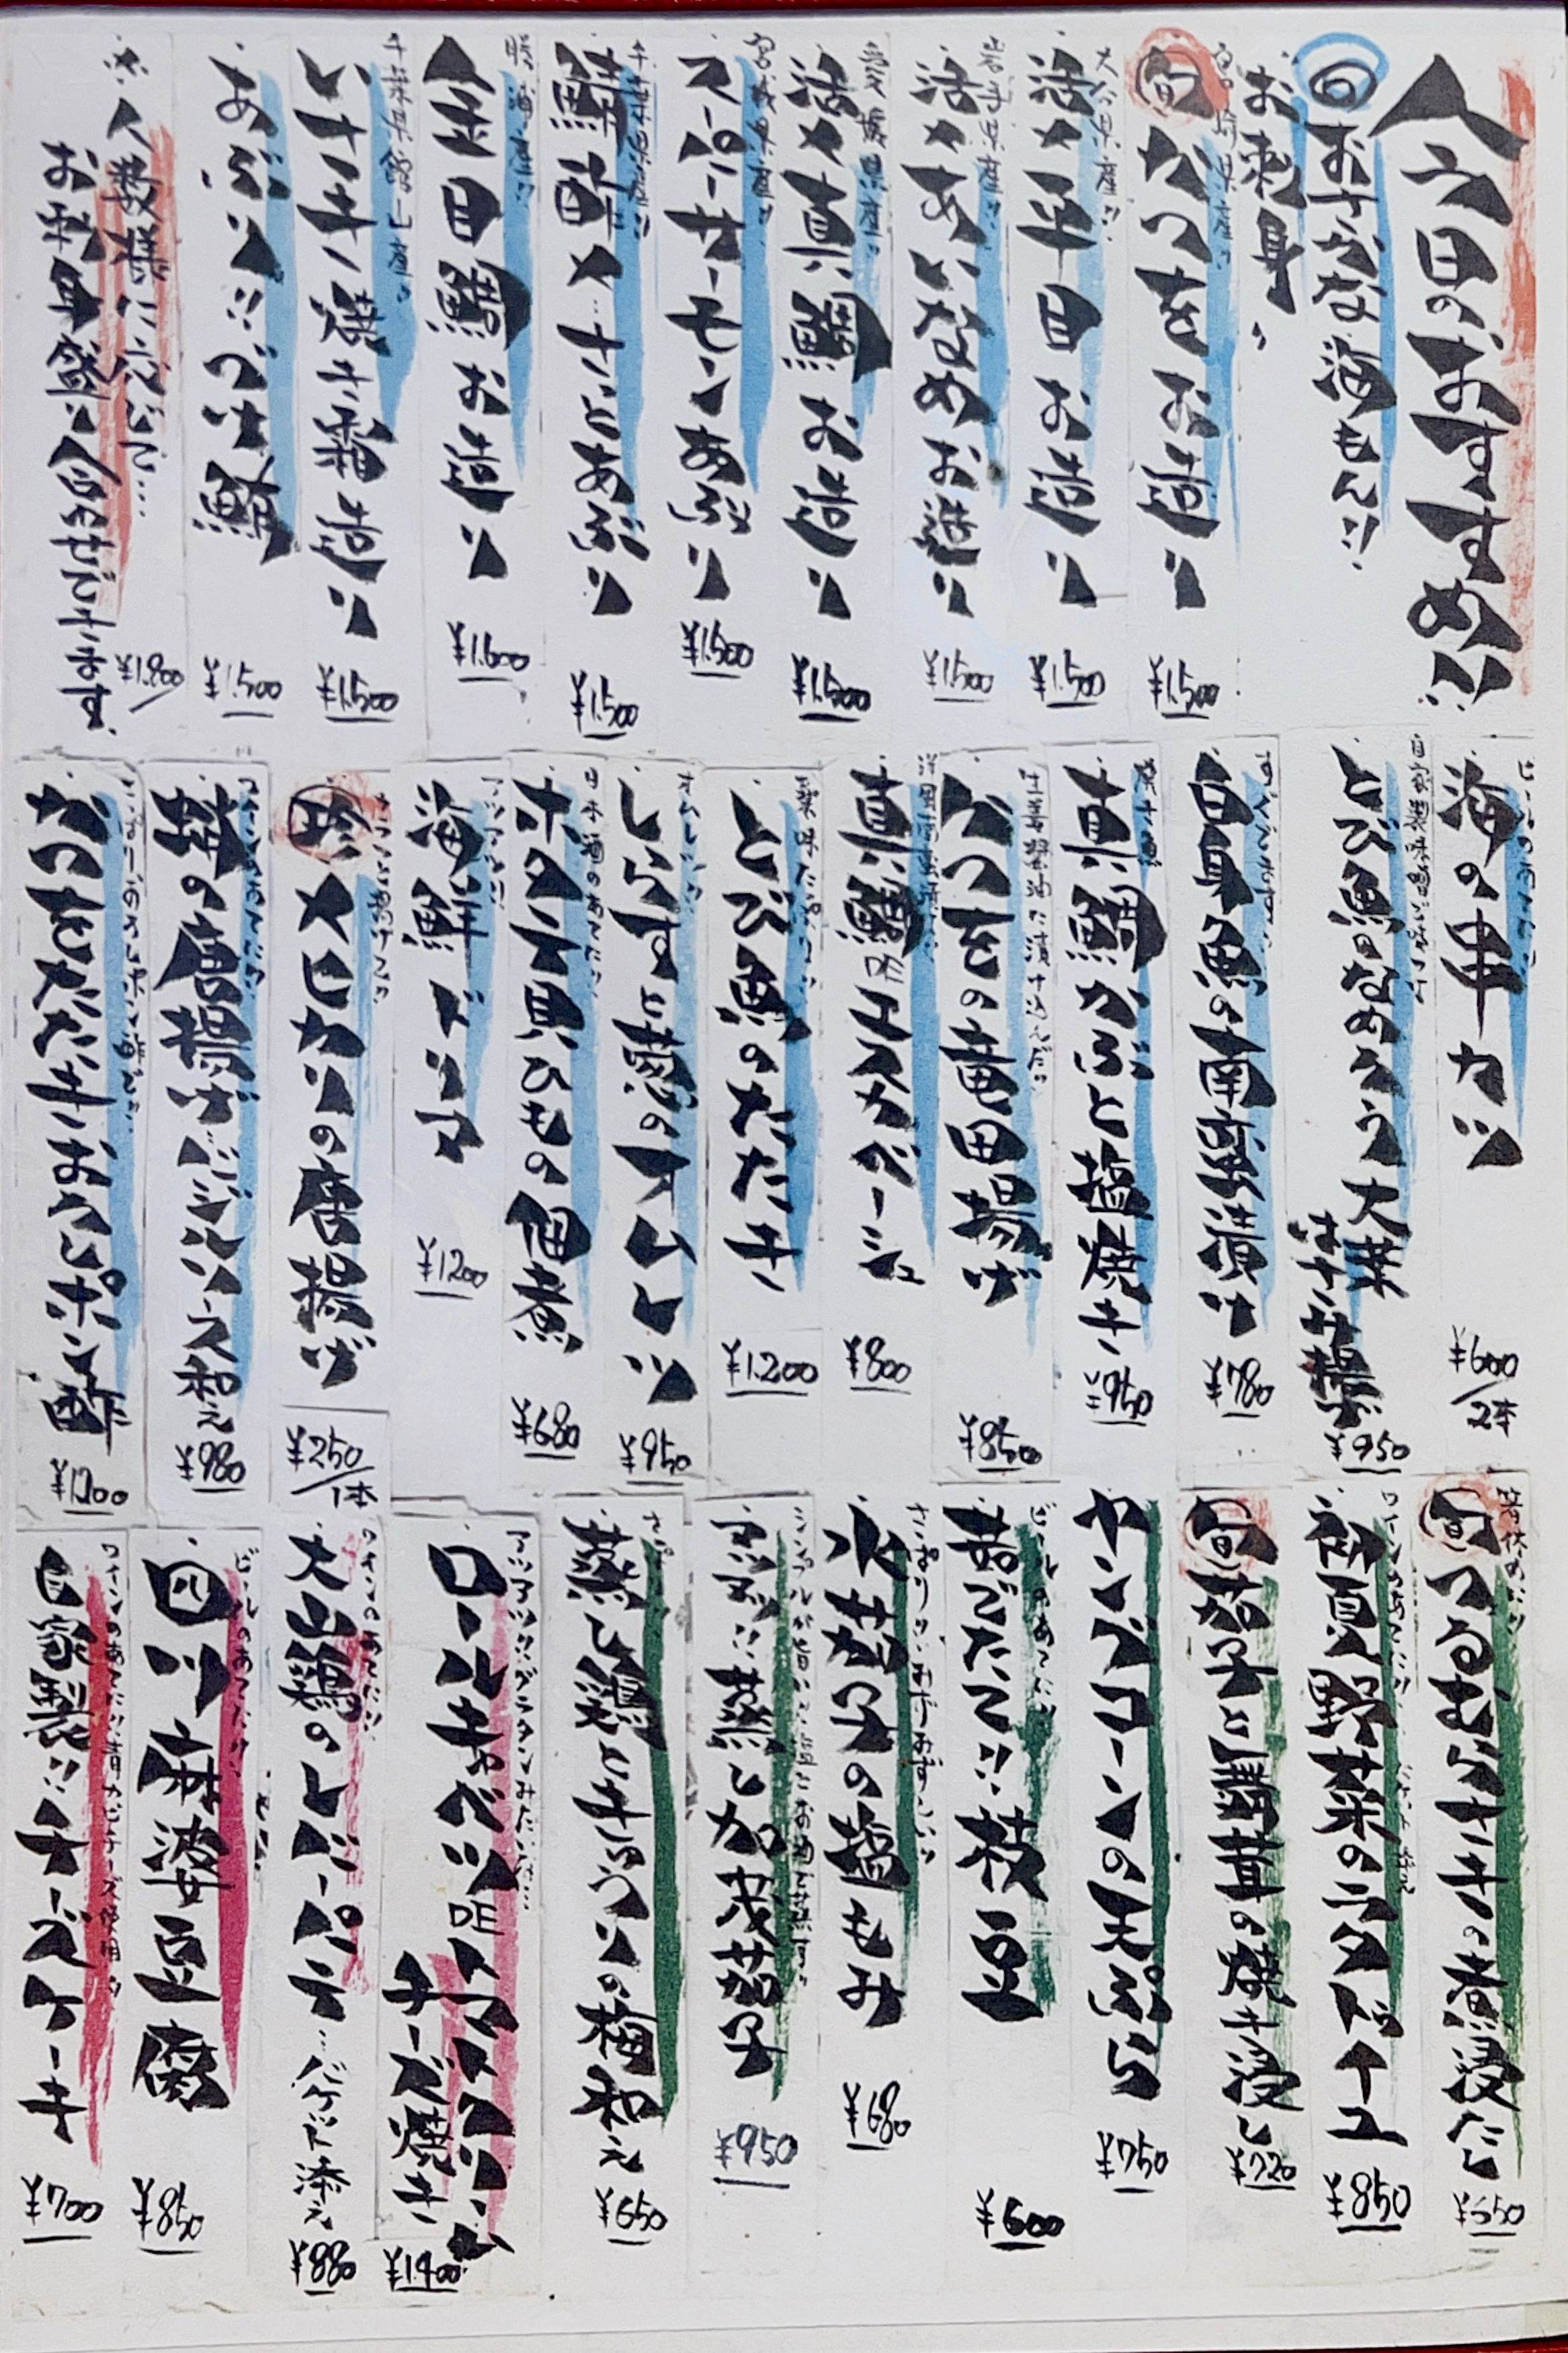 今日のおすすめ!!
旬おさかな海もん!!
お刺身
宮崎県産!!
旬かつをお造り
¥1,500
大分県産!!
活〆平目お造り
¥1,500
岩手県産!!
活〆あいなめお造り
¥1,500
愛媛県産!!
活〆真鯛お造り
¥1,500
宮城県産!!
スーパーサーモンあぶり
¥1,500
千葉県産!!
鯵酢〆…さっとあぶり
¥1,500
勝浦産!!
金目鯛お造り
¥1,600
千葉県館山産!!
いさき焼き霜造り
¥1,500
あぶり!!づけ鮪
¥1,500
※人数様に応じて…
お刺身盛り合わせできます
¥1,800/
海の串カツ
¥600/2本
自家製味噌で味つけ
とび魚なめろう大葉はさみ揚げ
¥950
白身魚の南蛮漬け
¥780
焼き魚
真鯛かぶと塩焼き
¥950
生姜醤油に漬け込んだ!!
かつをの竜田揚げ
¥850
洋風南蛮漬け
真鯛のエスカベーシュ
¥800
薬味たっぷり!!
とび魚のたたき
¥1,200
しらすと葱のオムレツ
¥950
日本酒のあてに!!
ホタテ貝ひもの佃煮
¥680
アツアツ!!
海鮮ドリア
¥1200
珍メヒカリの唐揚げ
¥250/1本
ワインのあてに!!
蛸の唐揚げバジルソース和え
¥980
かつをたたきおろしポン酢
¥1,200
箸休めに!!
旬つるむらさきの煮浸たし
¥550
ワインのあてに!!
初夏野菜のラタトゥイユ
¥850
旬茄子と舞茸の焼き浸し
¥720
ヤングコーンの天ぷら
¥750
ビールのあてに!!
茹でたて!!枝豆
¥600
さっぱり!!
水茄子の塩もみ
¥680
アツアツ!!蒸し加茂茄子
¥950
蒸し鶏ときゅうりの梅和え
¥650
アツアツ!!グラタンみたいな…
ロールキャベツのトマトソースチーズ焼き
¥1,400
ワインのあてに!!
大山鶏のレバーパテ…バケット添え
¥880
ビールのあてに!!
四川麻婆豆腐
¥850
ワインのあてに!!青カビチーズ使用!!
自家製!!チーズケーキ
¥700